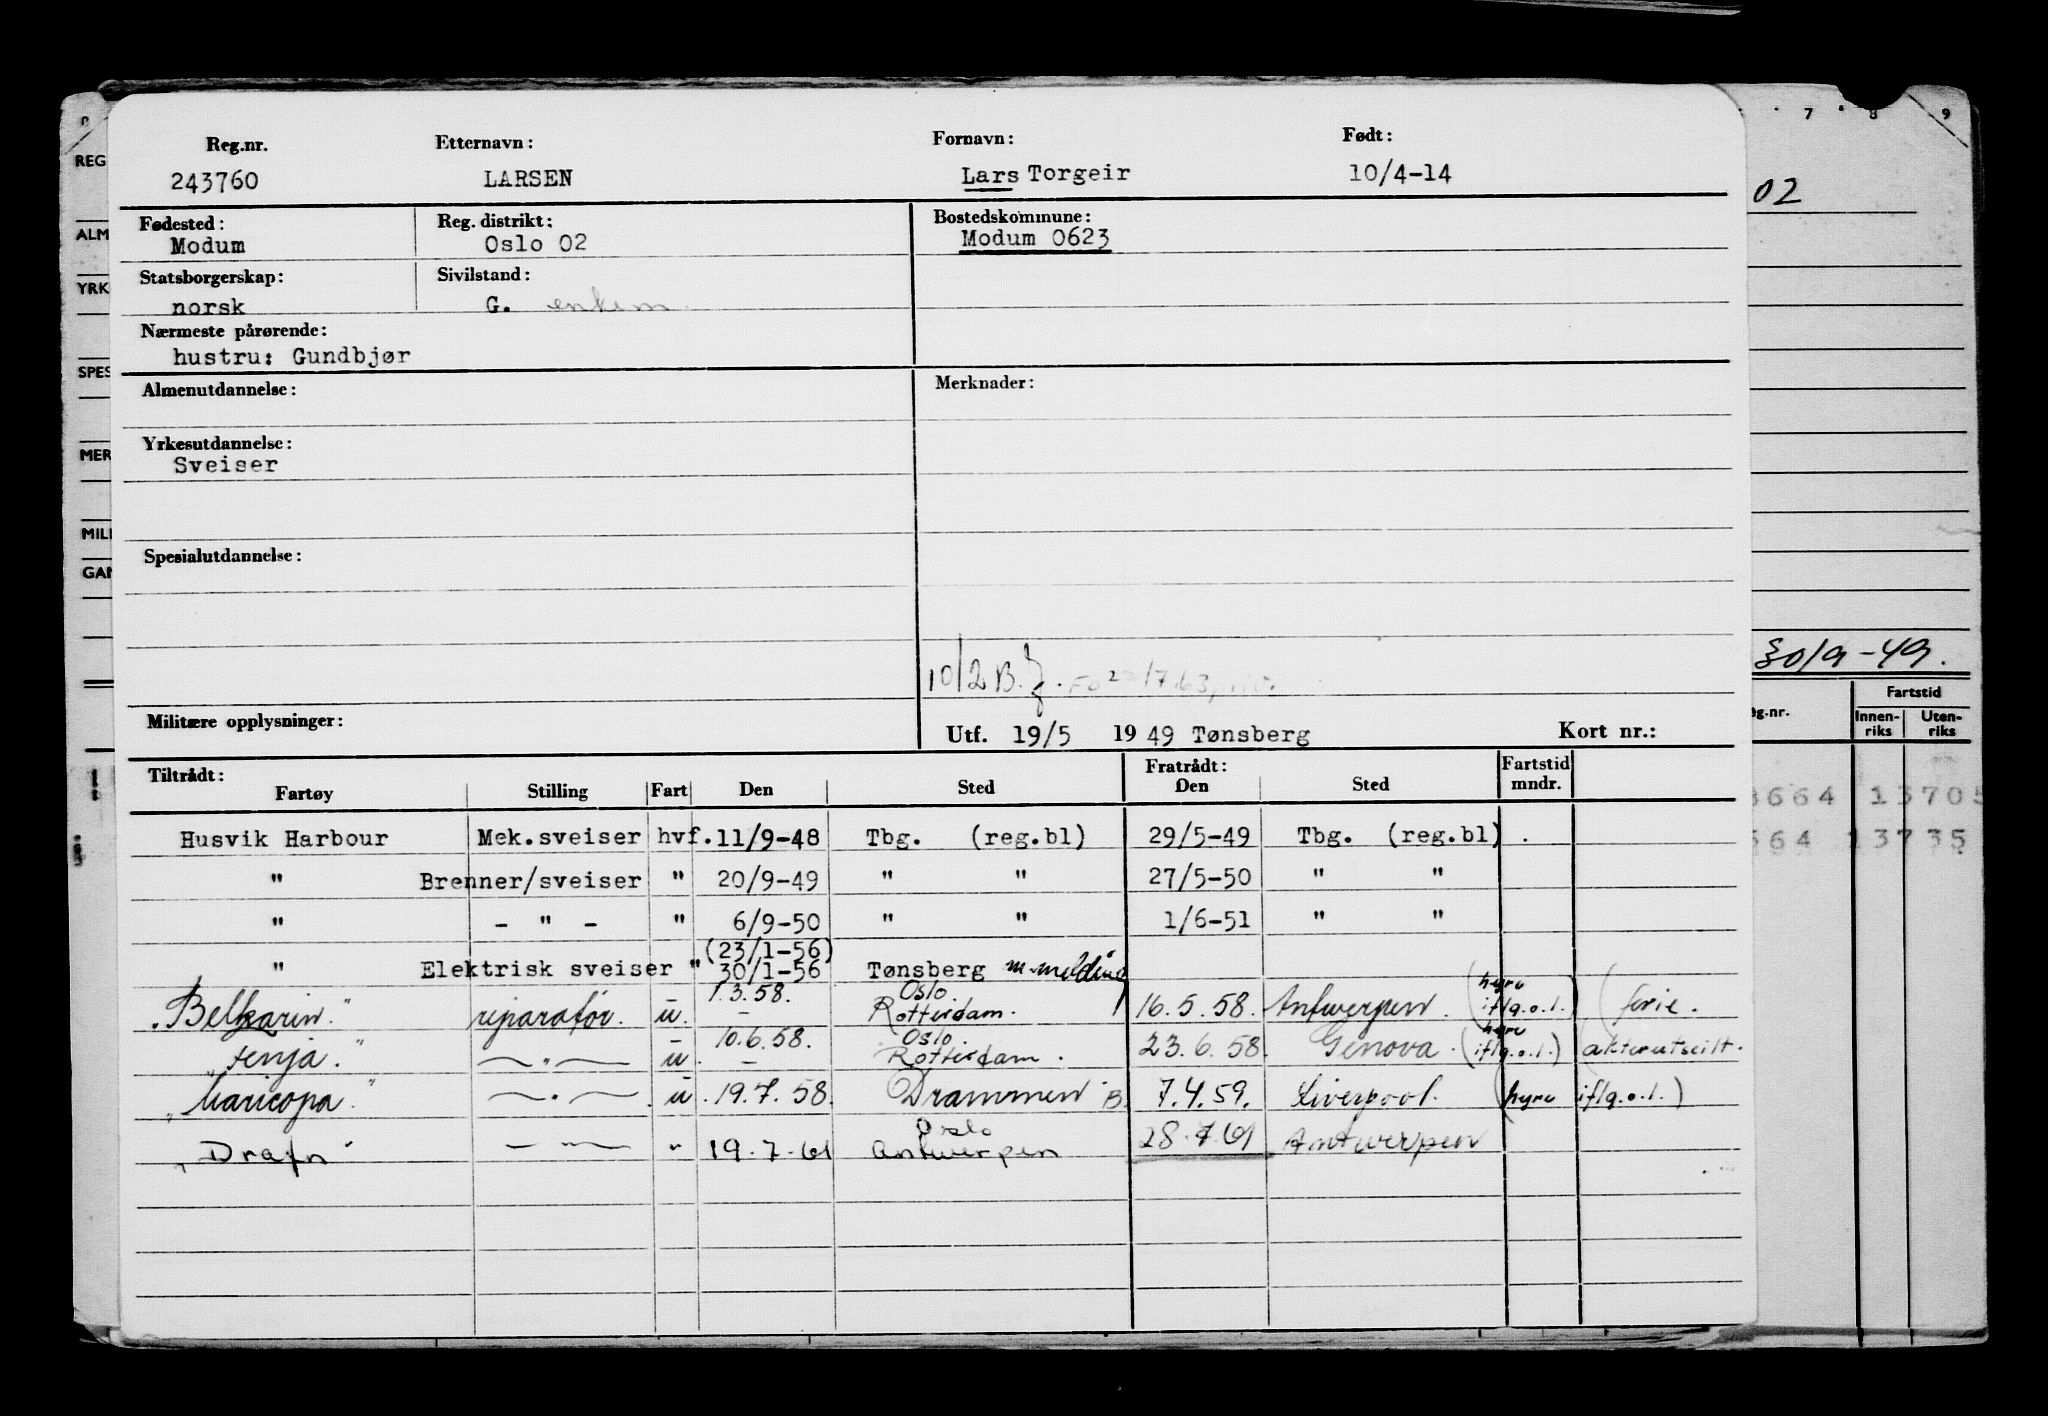 Reg.nr. Etternavn: Fornavn: Født:
243760 LARSEN Lars Torgeir 10/4-14
Fødested: Reg. distrikt: Bostedskommune:
Modum Oslo 02 Modum 0623
Statsborgerskap: Sivilstand:
norsk G. enkem.
Nærmeste pårørende:
hustru: Gundbjør
Almenutdannelse: Merknader:
Yrkesutdannelse:
Sveiser
Spesialutdannelse:
10/2 B. 22/7.63
Militære opplysninger: Utf. 19/5 1949 Tønsberg Kort nr.:
Tiltrådt: Fratrådt: Fartstid
Fartøy Stilling Fart Den Sted Den Sted mndr.
Husvik Harbour Mek.sveiser hvf. 11/9-48 Tbg. (reg.bl) 29/5-49 Tbg. (reg.bl) .
" Brenner/sveiser " 20/9-49 " " 27/5-50 " "
" - " - " 6/9-50 " " 1/6-51 " "
(23/1-56)
" Elektrisk sveiser " 30/1-56 Tønsberg m-melding
1.3.58. Oslo. hyre
"Belkarin." reparatör. u. - Rotterdam. 16.5.58. Antwerpen. (iflg.o.l.) (ferie.
10.6.58. Oslo. hyre
"Tenja." — " — u. - Rotterdam. 23.6.58. Genova. (iflg.o.l.) akterutseilt.
"Maricopa." — " — u. 19.7.58. Drammen B. 7.4.59. Liverpool. (hyre iflg.o.l.)
Oslo
"Drafn" — " — " 19.7.61 Antwerpen 28.7.61 Antwerpen
REG
ALM
YRK
SPES
MER
MILI
GAN
7 8 9
02
30/9-49.
Fartstid
g.nr. Innen-riks Uten-riks
3664 13705
564 13735